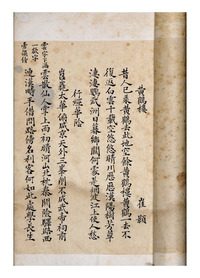 黃鶴樓
崔顥
昔人已乘黃鶴去此地空餘黃鶴樓黃鶴一去不
復返白雲千載空悠悠晴川歷歷漢陽樹芳草
萋萋鸚鵡洲日暮鄉關何處是煙波江上使人愁
行經華陰
岧嶢太華俯咸京天外三峯削不成武帝祠前
雲散仙人掌上雨初晴河山北枕秦關險驛路西
連漢畤平借問路傍名利客何如此處學長生
一欲字